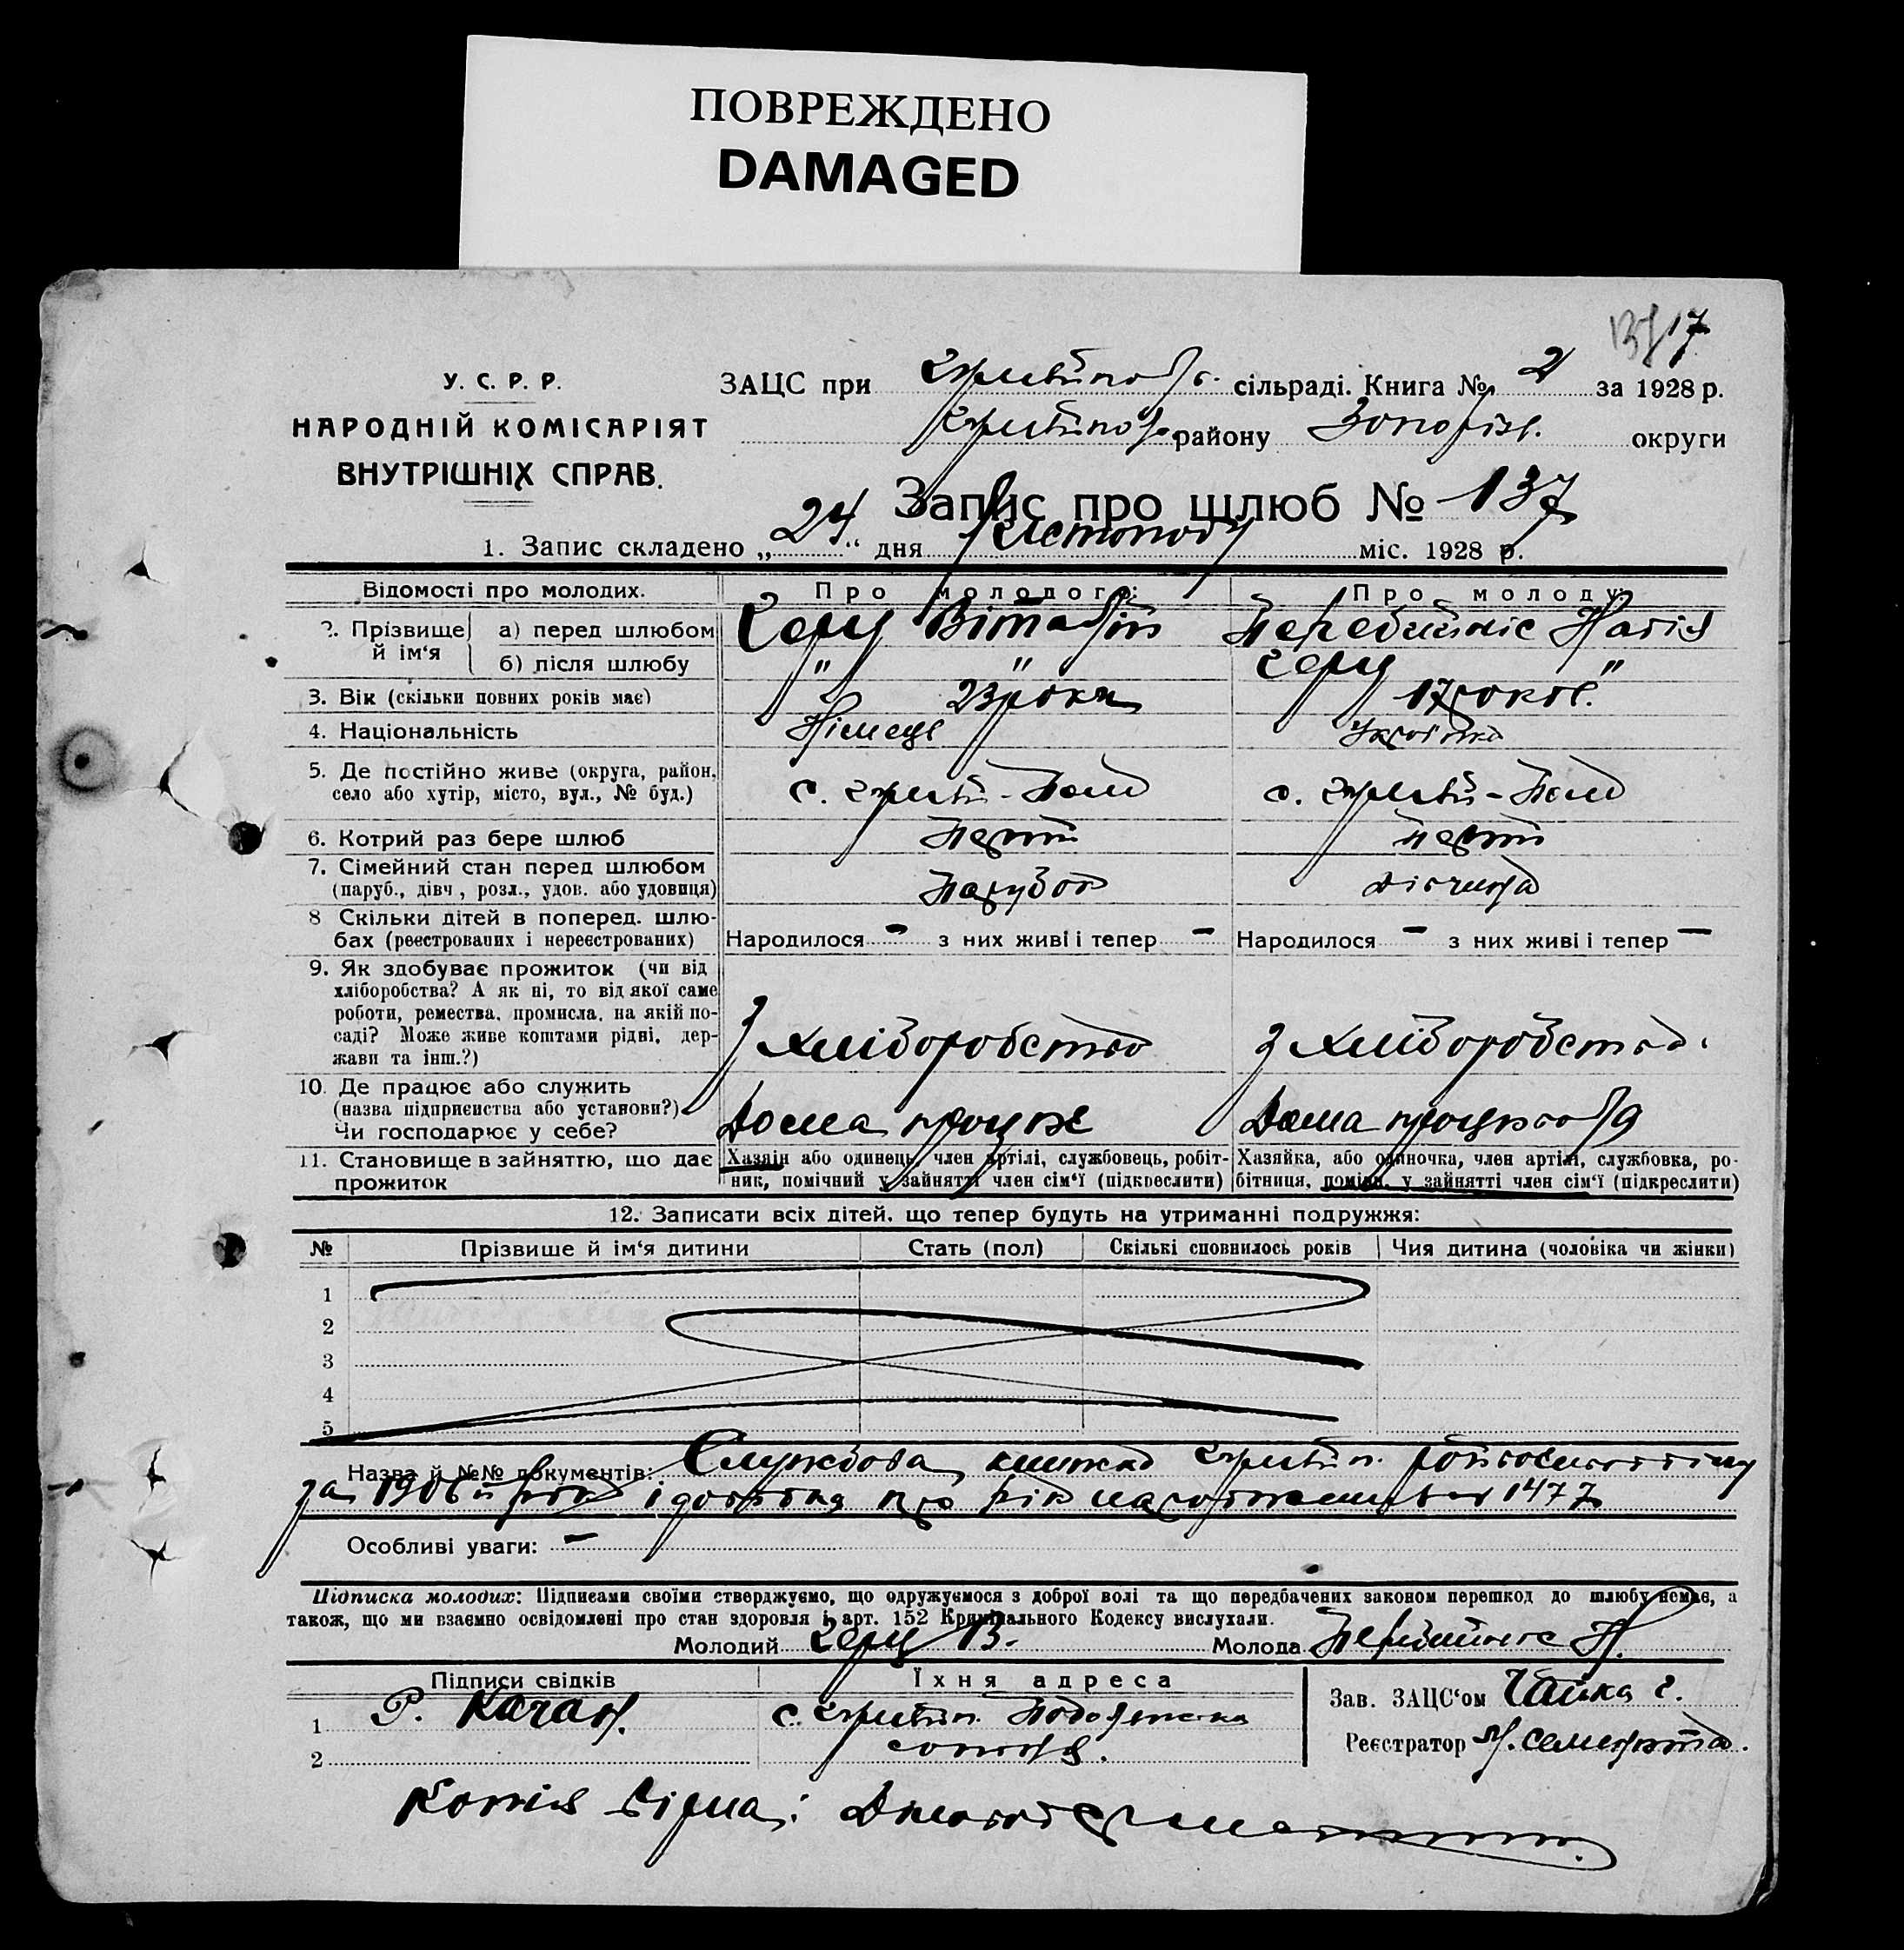 ПОВРЕЖДЕНО
DAMAGED
137 17
У. С. Р. Р.
НАРОДНІЙ КОМІСАРІЯТ
ВНУТРІШНІХ СПРАВ.
ЗАЦС при сільраді. Книга № 2 за 1928 р.
району Запоріз. округи
Запис про шлюб № 137
1. Запис складено „24“ дня Листопада міс. 1928 р.
Відомості про молодих. Про молодого: Про молоду:
2. Прізвище й ім‘я а) перед шлюбом Герц Віталій Перебийніс Надія
б) після шлюбу " " Герц "
3. Вік (скільки повних років має) 23 роки 17 років.
4. Національність Німець Українка
5. Де постійно живе (округа, район, село або хутір, місто, вул., № буд.) с. Гуляй-Поле с. Гуляй-Поле
6. Котрий раз бере шлюб Перший перший
7. Сімейний стан перед шлюбом (паруб., дівч., розл., удов. або удовиця) Парубок дівчина
8 Скільки дітей в поперед. шлюбах (реєстрованих і нереєстрованих) Народилося - з них живі і тепер - Народилося - з них живі і тепер -
9. Як здобуває прожиток (чи від хліборобства? А як ні, то від якої саме роботи, ремества, промисла, на якій посаді? Може живе коштами рідні, держави та інш.?) З хліборобства З хліборобства.
10. Де працює або служить (назва підприємства або установи?) Чи господарює у себе? Дома працює Дома працювала
11. Становище в зайняттю, що дає прожиток
Хазяїн або одинець, член артілі, службовець, робітник, помічний у зайнятті член сім‘ї (підкреслити)
Хазяйка, або одиночка, член артілі, службовка, робітниця, помічн. у зайнятті член сім‘ї (підкреслити)
12. Записати всіх дітей, що тепер будуть на утриманні подружжя:
№ Прізвище й ім‘я дитини Стать (пол) Скількі сповнилось років Чия дитина (чоловіка чи жінки)
1
2
3
4
5
Назва й №№ документів: Службова книжка
за 1906 й рік і довідка про рік народження 1477
Особливі уваги: -
Підписка молодих: Підписами своїми стверджуємо, що одружуємося з доброї волі та що передбачених законом перешкод до шлюбу немає, а
також, що ми взаємно освідомлені про стан здоровля і арт. 152 Кримінального Кодексу вислухали.
Молодий Герц В. Молода Перебийніс Н.
Підписи свідків Їхня адреса
1 Р. Качан. с.
2 сотня.
Зав. ЗАЦС‘ом Чайка Г.
Реєстратор
Копія вірна: